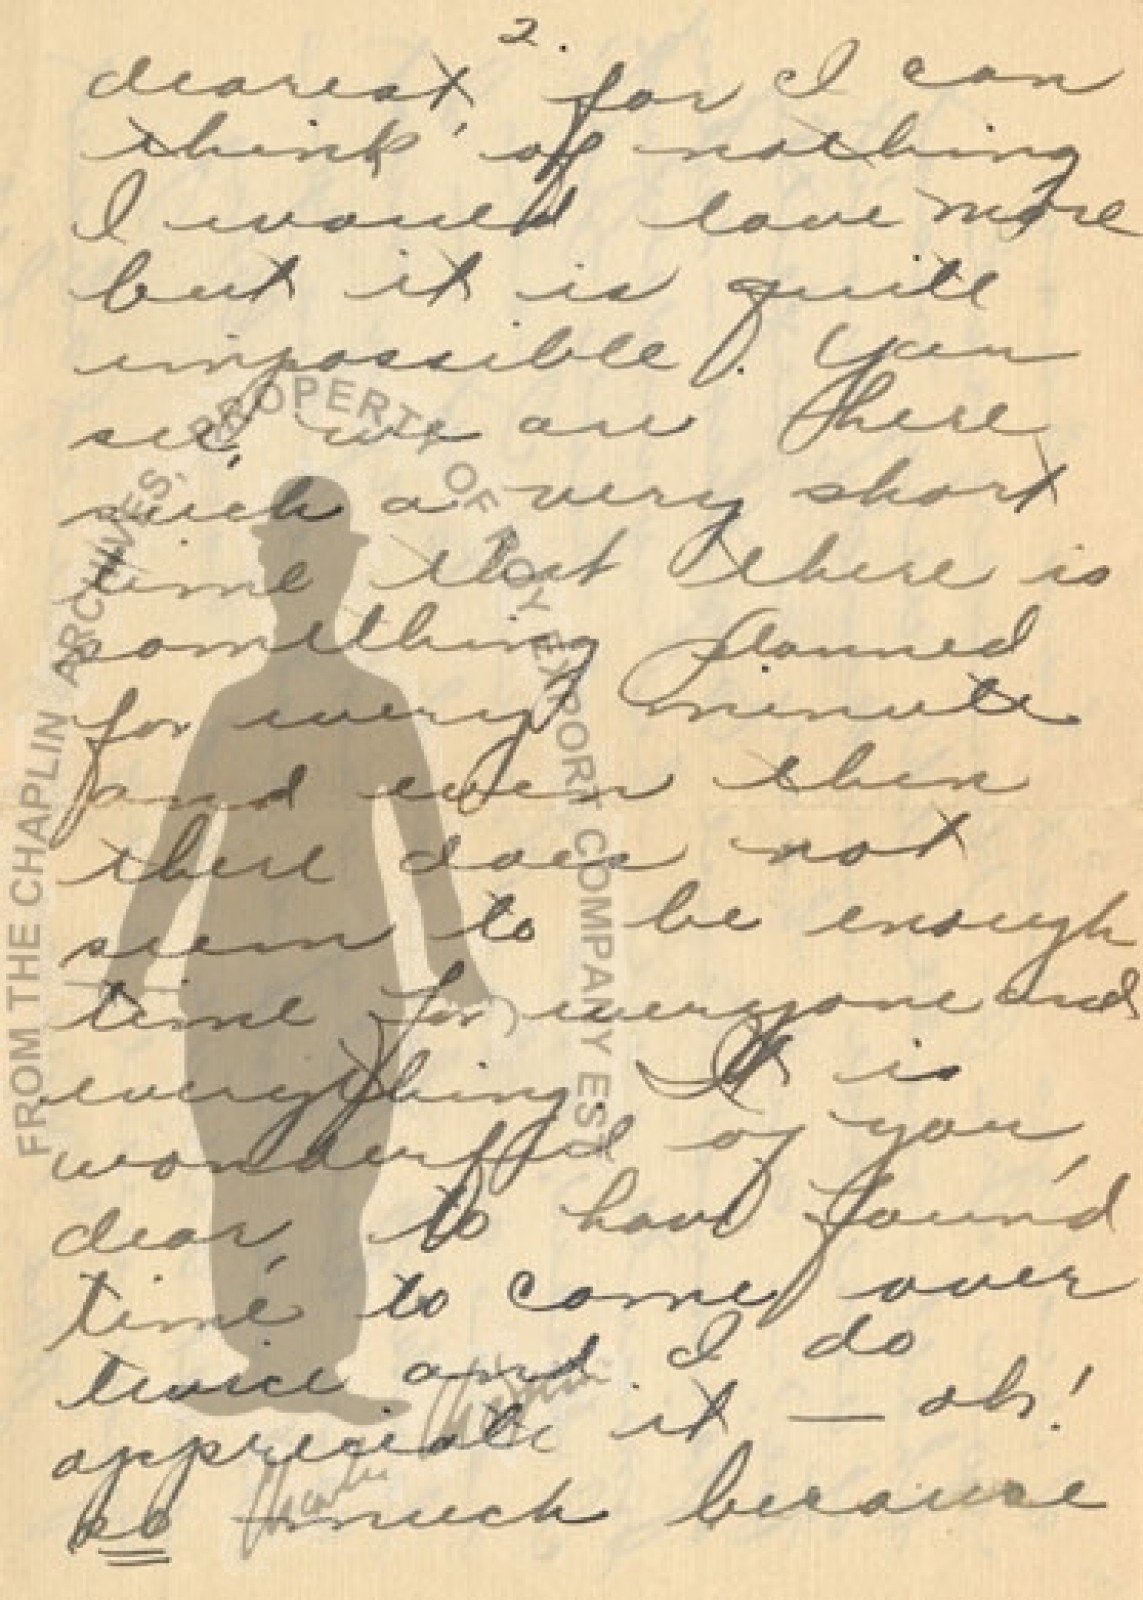 2.
dearest, for I can
think of nothing
I would love more
but it is quite
impossible. You
see, we are here
such a very short
time that there is
something planned
for every minute
and even then
there does not
seem to be enough
time for everyone and
everything. It is
wonderful of you,
dear, to have found
time to come over
twice and I do
appreciate it — oh!
so much because
FROM THE CHAPLIN ARCHIVES, PROPERTY OF ROY EXPORT COMPANY EST
Charlie Chaplin